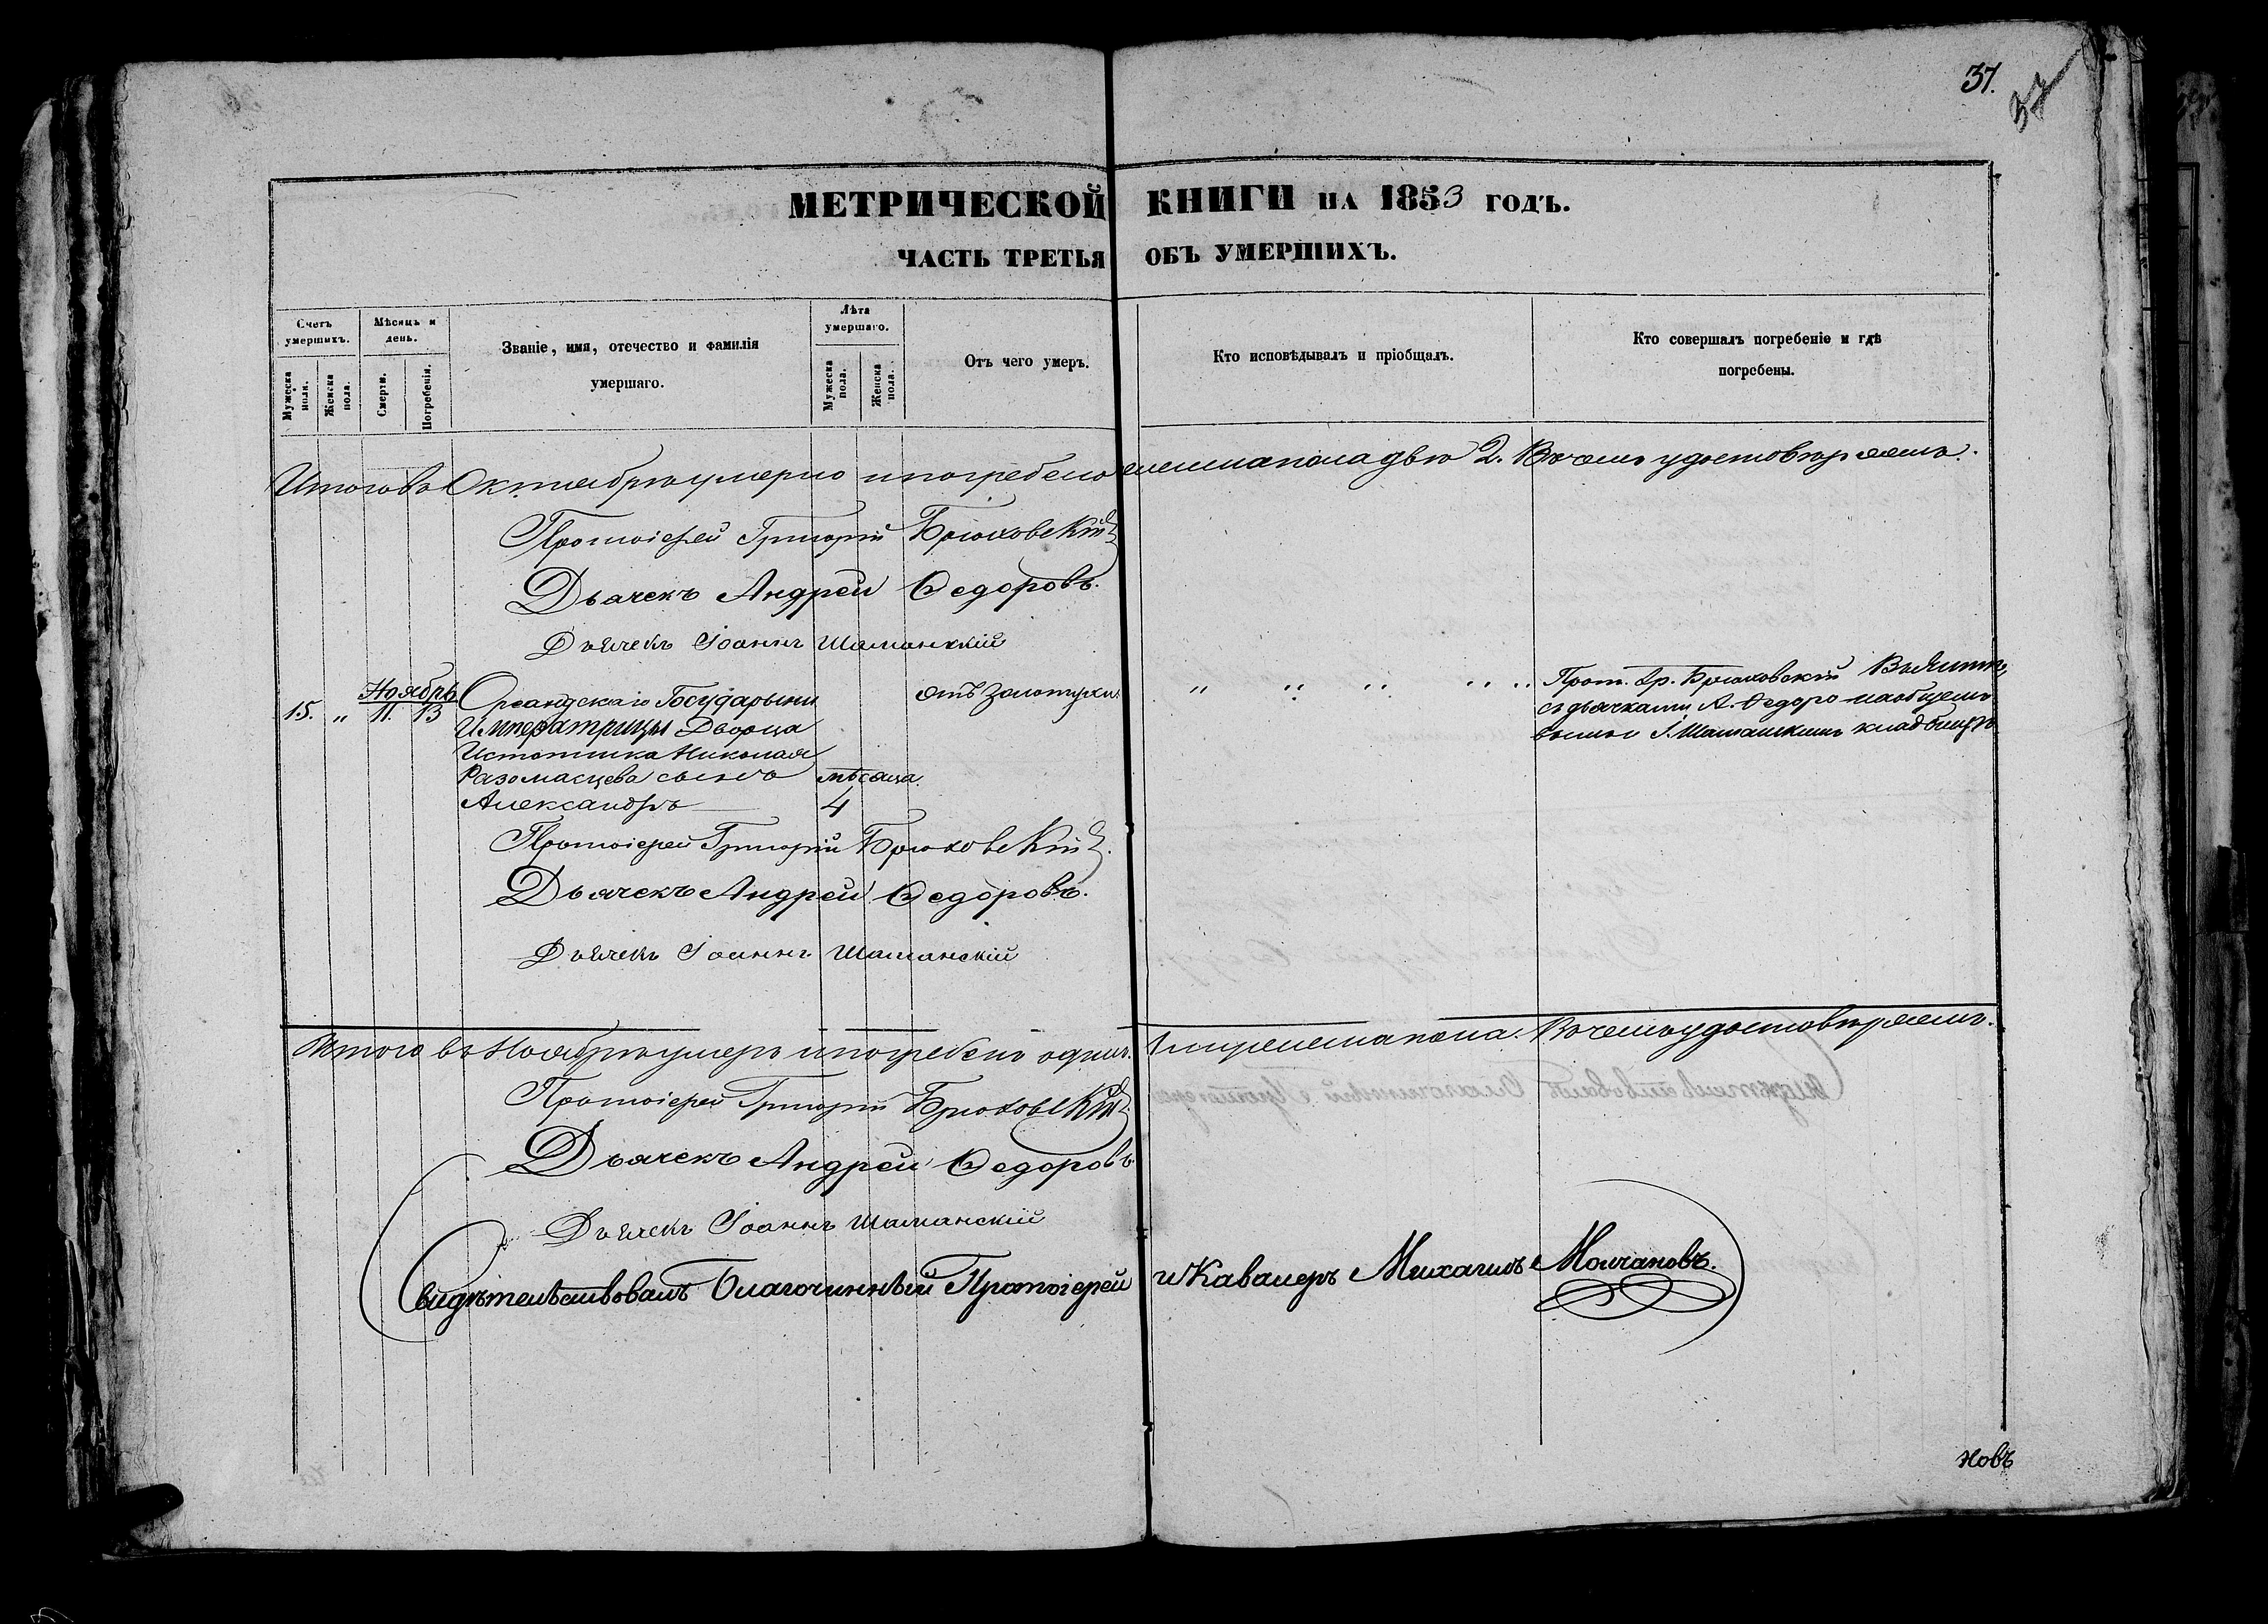 37.
37
МЕТРИЧЕСКОЙ КНИГИ НА 1853 ГОДЪ.
ЧАСТЬ ТРЕТЬЯ ОБЪ УМЕРШИХЪ.
Счетъ умершихъ.
Мужеска пола.
Женска пола.
Мѣсяцъ и день.
Смерти.
Погребенія.
Званіе, имя, отечество и фамилія
умершаго.
Лѣта умершаго.
Мужеска пола.
Женска пола.
Отъ чего умеръ.
Кто исповѣдывалъ и пріобщалъ.
Кто совершалъ погребеніе и гдѣ
погребены.
Итого въ Октябрѣ умерло и погребено женска пола двѣ 2. Въ чемъ удостовѣряемъ.
Протоіерей Григорій Брюховскій
Дьячекъ Андрей Ѳедоровъ.
Дьячекъ Іоаннъ Шаманскій
Ноябрь
15. " 11. 13 Ореандскаго Государыни отъ Золотухи. " " " " " Прот. Гр. Брюховскій Въ Ялтѣ,
Императрицы Дворца съ дьячками А. Ѳедоро- на общемъ
Истопника Николая вымъ и І. Шаманскимъ кладбищѣ
Разомасцева сынъ мѣсяца.
Александръ 4
Протоіерей Григорій Брюховскій.
Дьячекъ Андрей Ѳедоровъ.
Дьячекъ Іоаннъ Шаманскій
Итого въ Ноябрѣ умеръ и погребенъ одинъ. 1 мужеска пола. Въ чемъ удостовѣряемъ.
Протоіерей Григорій Брюховскій.
Дьячекъ Андрей Ѳедоровъ
Дьячекъ Іоаннъ Шаманскій
Свидѣтельствовалъ Благочинный Протоіерей и Кавалеръ Михаилъ Молчановъ.
новъ